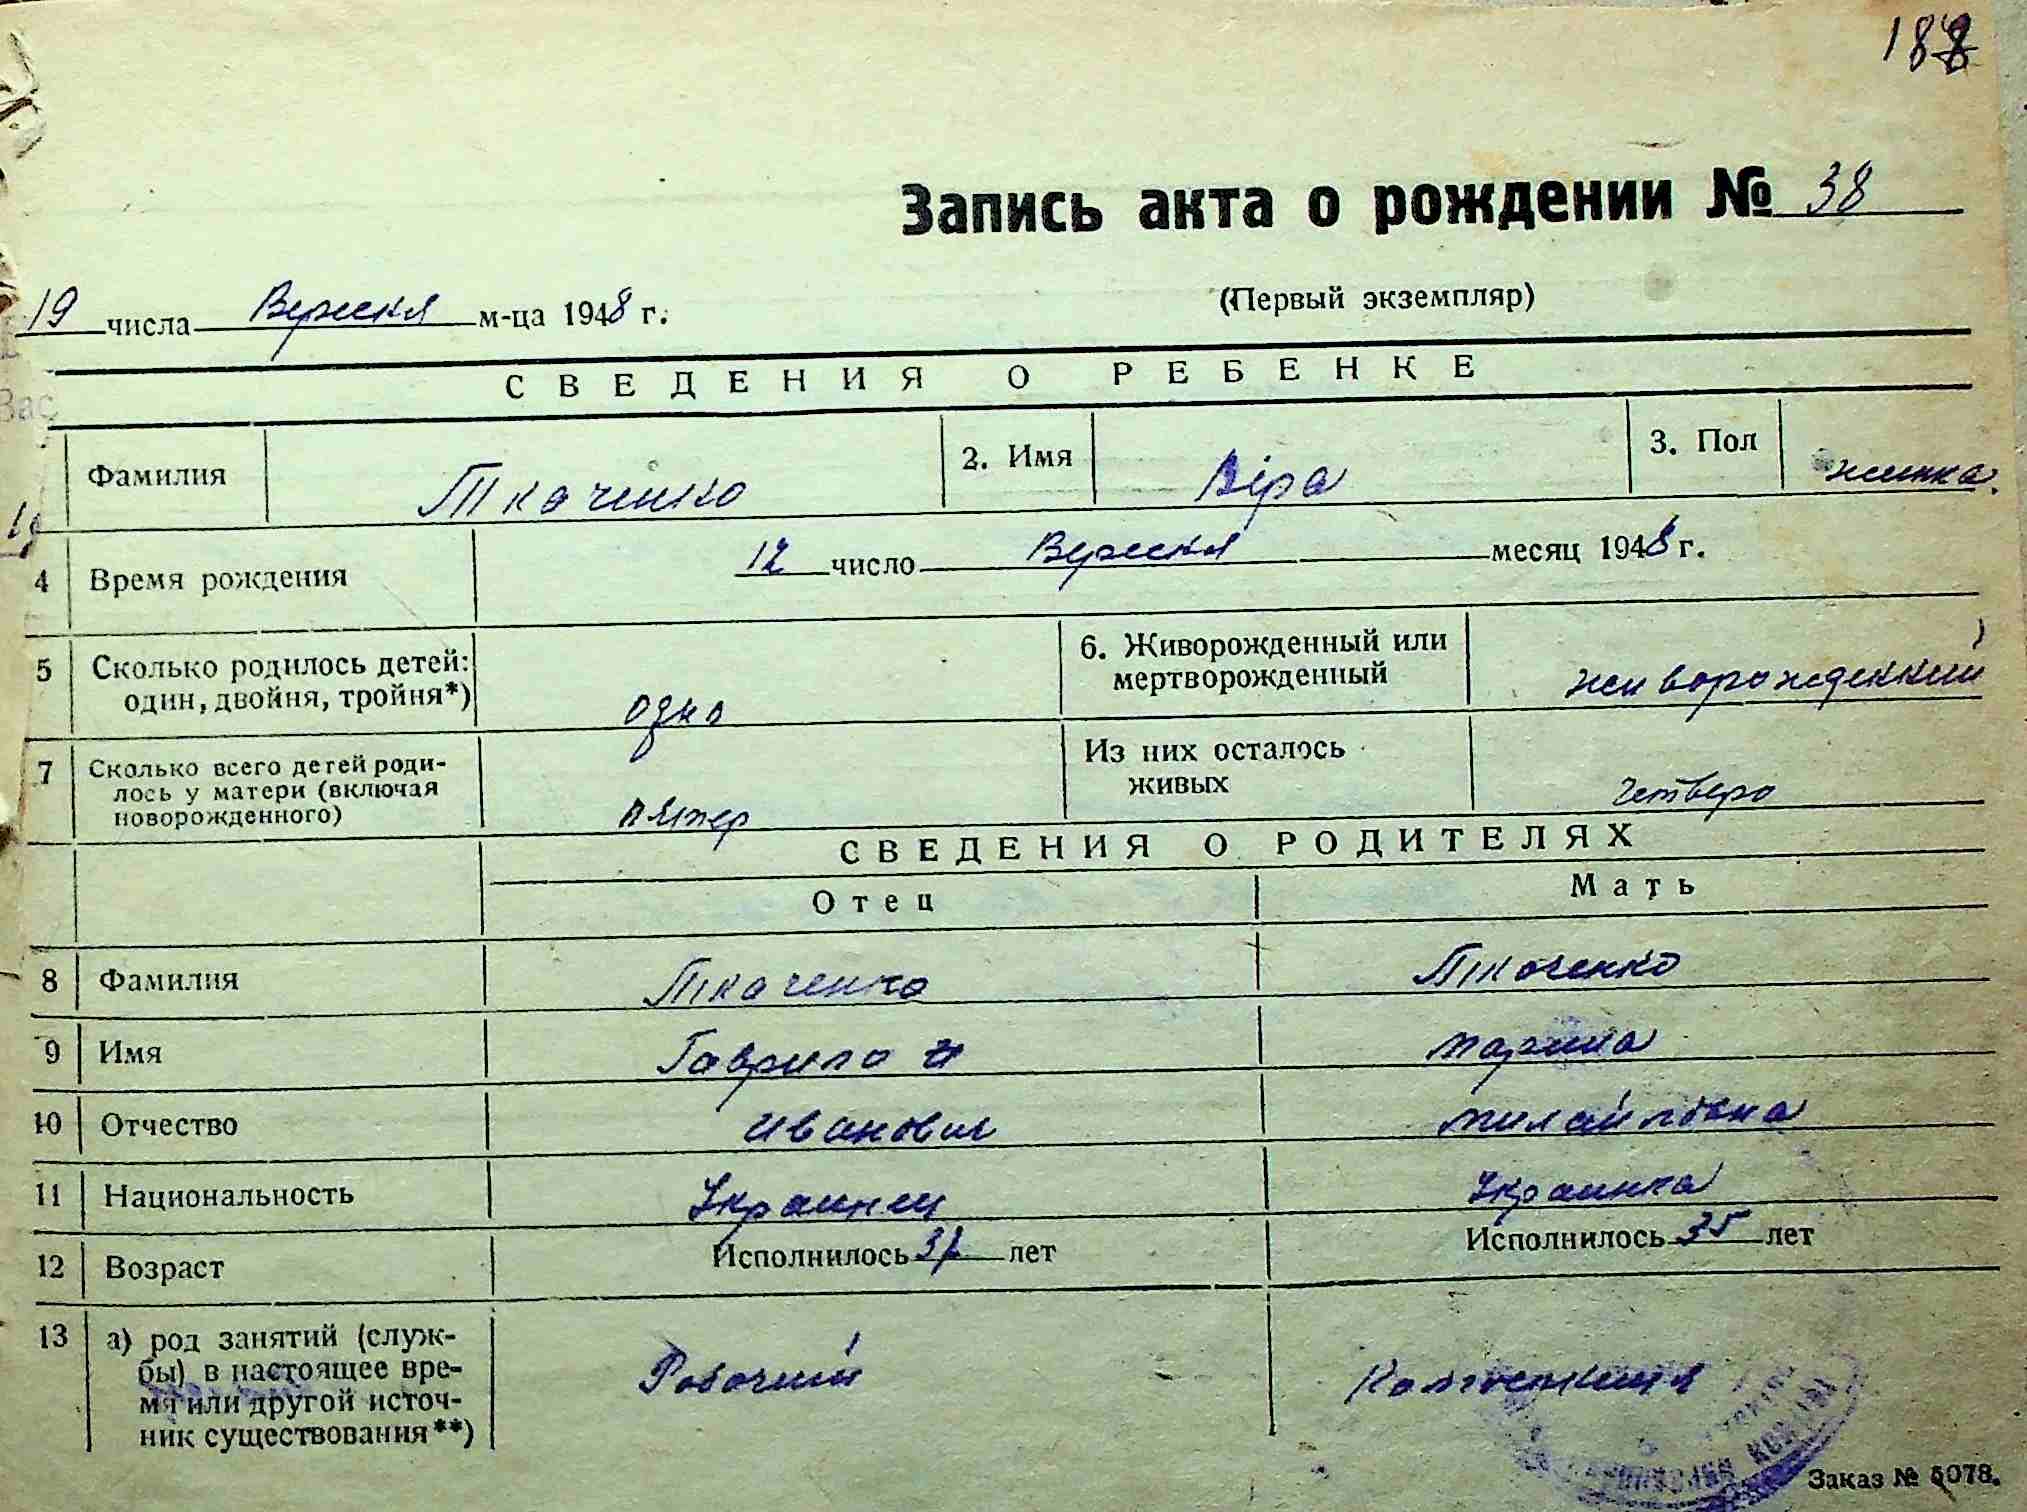 188
Запись акта о рождении № 38
(Первый экземпляр)
19 числа Вересня м-ца 1948 г.
СВЕДЕНИЯ О РЕБЕНКЕ
Фамилия Ткаченко 2. Имя Віра 3. Пол жинка.
4 Время рождения 12 число Вересня месяц 1948 г.
5 Сколько родилось детей: один, двойня, тройня*) одно 6. Живорожденный или мертворожденный живорожденний
7 Сколько всего детей роди-
лось у матери (включая
новорожденного) пятер Из них осталось живых четверо
СВЕДЕНИЯ О РОДИТЕЛЯХ
Отец Мать
8 Фамилия Ткаченко Ткаченко
9 Имя Гаврило Марина
10 Отчество Иванович Михайловна
11 Национальность Украинец Украинка
12 Возраст Исполнилось лет Исполнилось 35 лет
13 а) род занятий (служ-
бы) в настоящее вре-
мя или другой источ-
ник существования**) Робочий Колгоспниця
Заказ № 6078.